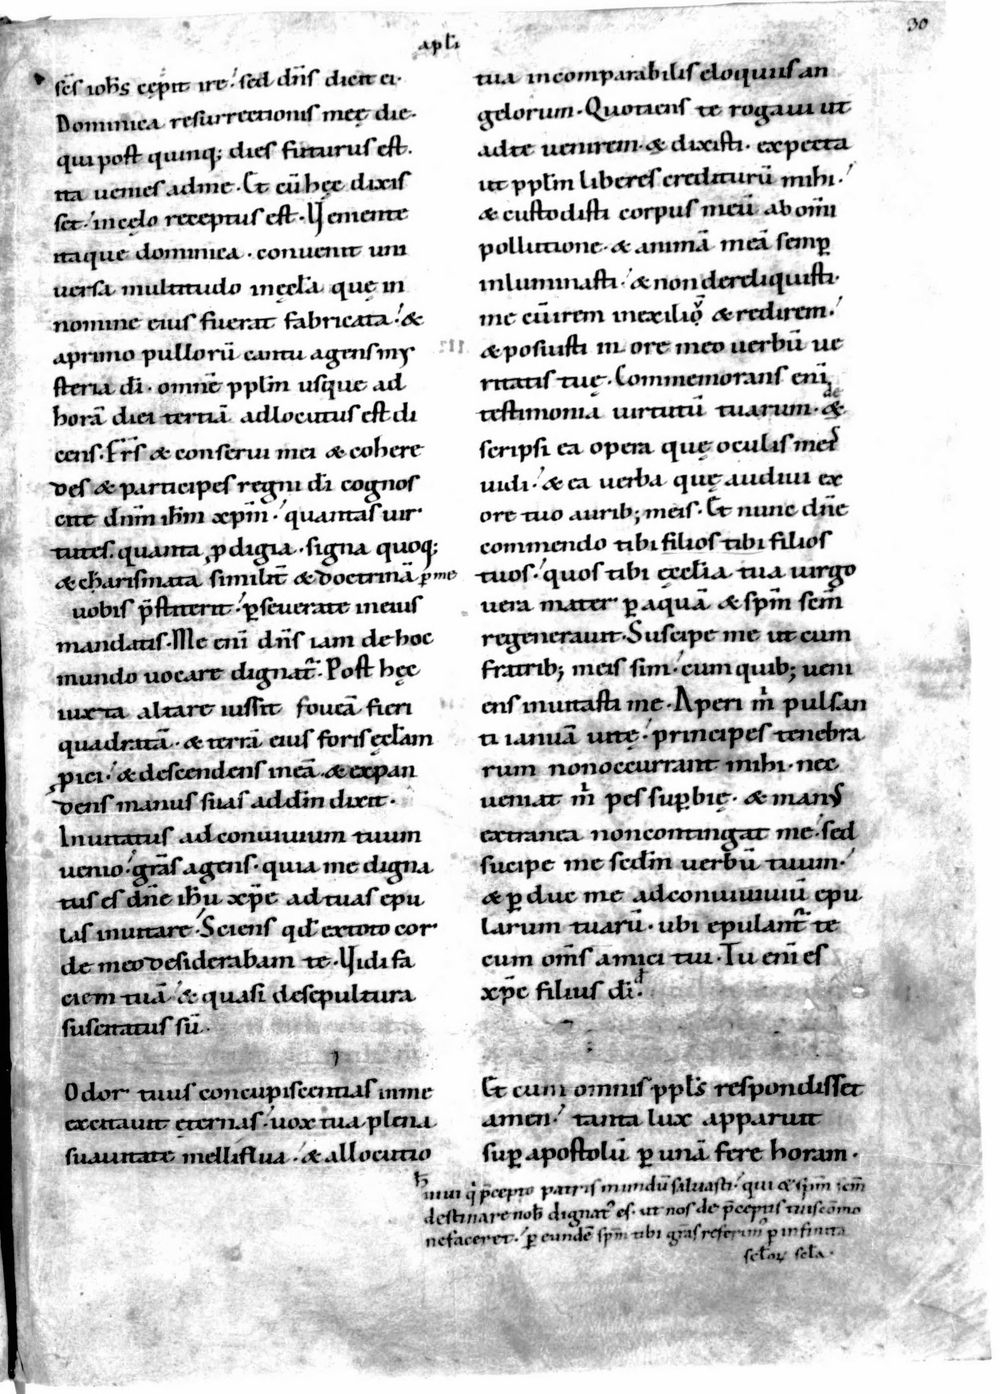 30
apl̄i
sc̄s ioh̄s cępit ire· sed dn̄s dicit ei·
Dominica resurrectionis meę die·
qui post quinq; dies futurus est·
ita uenies ad me· Et cū hęc dixis
set· in cęlo receptus est· Veniente
itaque dominica· conuenit uni
uersa multitudo in ęccl̄a quę in
nomine eius fuerat fabricata· &
a primo pullorū cantu agens my
steria dī· omnē ppl̄m usque ad
horā diei tertiā adlocutus est di
cens· Fr̄s & conserui mei & cohere
des & participes regni dī cognos
cite dn̄m ih̄m xp̄m· quantas uir
tutes· quanta ꝓdigia· signa quoq;
& charismata similit̄ & doctrinā p̄ me
uobis p̄stiterit· ꝑseuerate in eius
mandatis· Me enī dn̄s iam de hoc
mundo uocare dignat̄· Post hęc
iuxta altare iussit foueā fieri
quadratā· & terrā eius foris ęccl̄am
ꝓici· & descendens in eā· & expan
dens manus suas ad dn̄m dixit·
Inuitatus ad conuiuium tuum
uenio· grās agens· quia me digna
tus es dn̄e ih̄u xp̄e ad tuas epu
las inuitare· Sciens qd̄ ex toto cor
de meo desiderabam te· Vidi fa
ciem tuā & quasi de sepultura
suscitatus sū·
Odor tuus concupiscentias in me
excitauit ęternas· uox tua plena
suauitate melliflua· & allocutio
tua incomparabilis eloquiis an
gelorum· Quotiens te rogaui ut
ad te uenirem· & dixisti· expecta
ut ppl̄m liberes crediturū mihi·
& custodisti corpus meū ab om̄i
pollutione· & animā meā semꝑ
inluminasti· & non dereliquisti·
me cū irem in exiliō & redirem·
& posuisti in ore meo uerbū ue
ritatis tuę· Commemorans enī
testimoniā uirtutū tuarum· &
scripsi ea opera quę oculis meis
uidi· & ea uerba quę audiui ex
ore tuo aurib; meis· Et nunc dn̄e
commendo tibi filios tibi filios
tuos· quos tibi ęccl̄ia tua uirgo
uera mater ꝑ aquā & sp̄m sc̄m
regenerauit· Suscipe me ut cum
fratrib; meis sim· cum quib; ueni
ens inuitasti me· Aperi m̄ pulsan
ti ianuā uitę· principes tenebra
rum non occurrant mihi· nec
ueniat m̄ pes suꝑbię· & man9
extranea non contingat me· sed
sucipe me sedm̄ uerbū tuum·
& ꝑduc me ad conuiuiuiū epu
larum tuarū· ubi epulant̄ te
cum om̄s amici tui· Tu enī es
xp̄e filius dī·
Et cum omnis ppl̄s respondisset
amen· tanta lux apparuit
suꝑ apostolū ꝑ unā fere horam·
uiui q̄ p̄cepto patris mundū saluasti· qui & sp̄m sc̄m
destinare nob̄ dignat9 es· ut nos de p̄ceptis tuis cōmo
nefaceret· ꝑ eundē sp̄m tibi grās referim9 ꝑ infinita
scl̄oꝝ scl̄a·